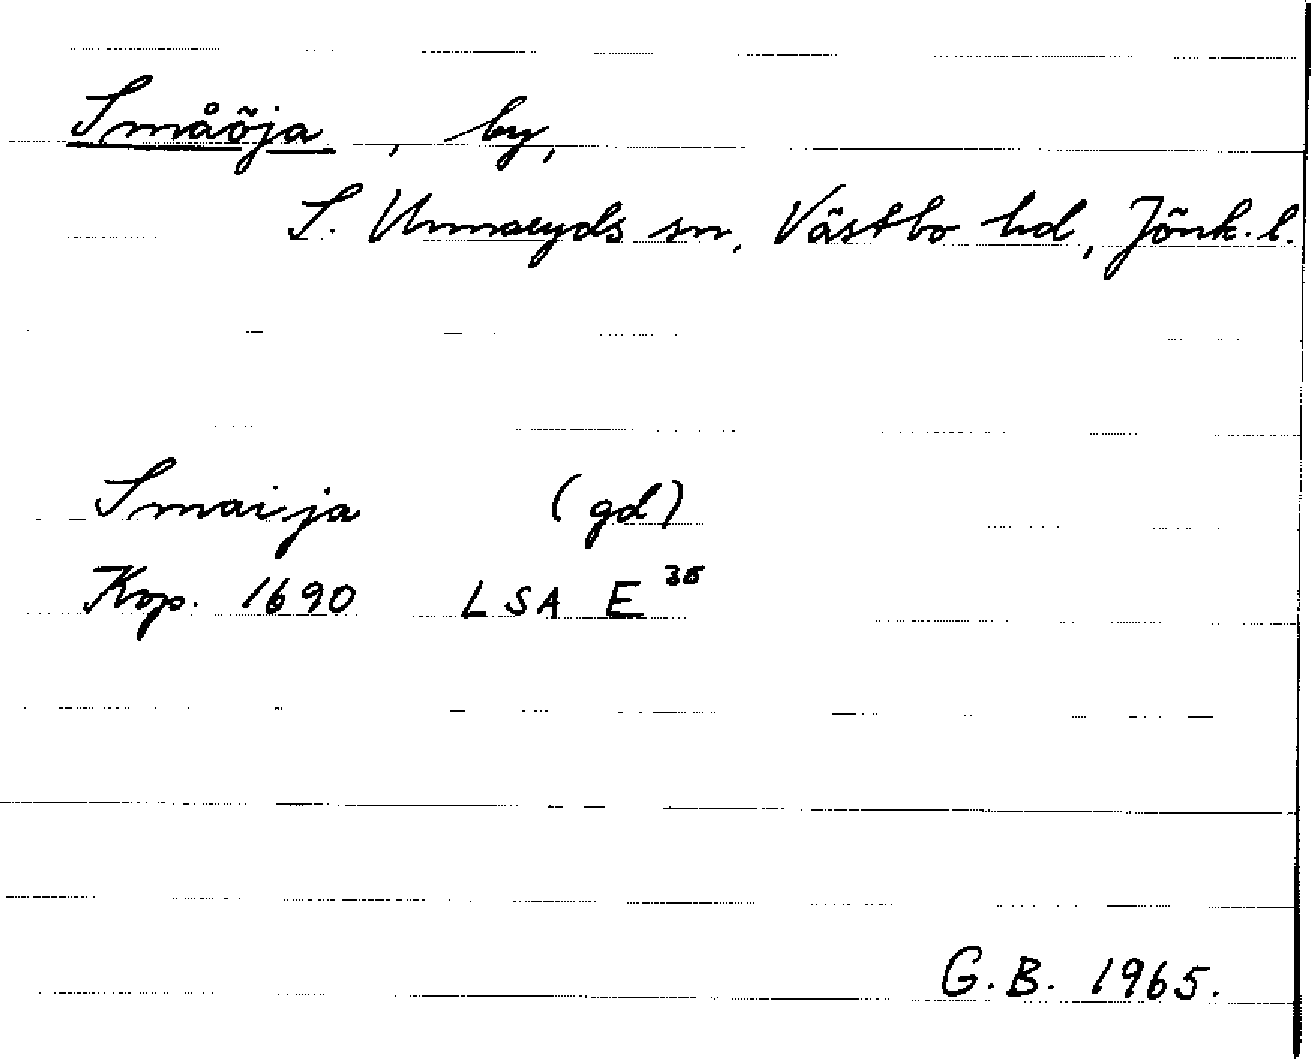 Småöja, by,
S. Unnaryds sn, Västbo hd, Jönk. l.
Smaija (gd)
Kop. 1690 LSA E 36
G.B. 1965.